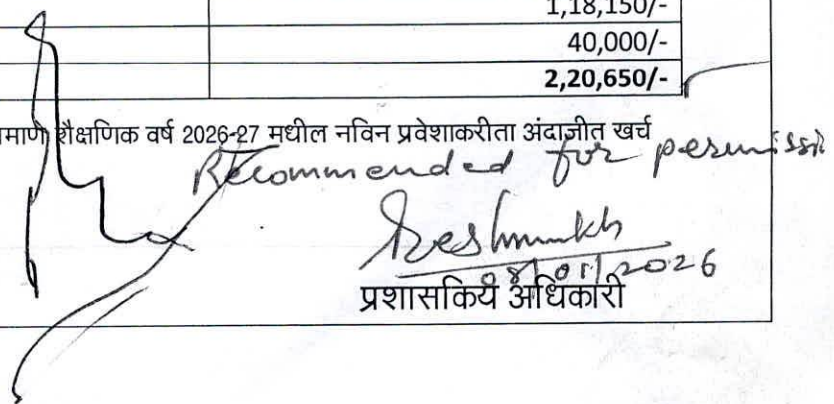 1,18,150/-
40,000/-
2,20,650/-
शैक्षणिक वर्ष 2026-27 मधील नविन प्रवेशाकरीता अंदाजीत खर्च
Recommended for permissio
Deshmukh
08/01/2026
प्रशासकिय अधिकारी